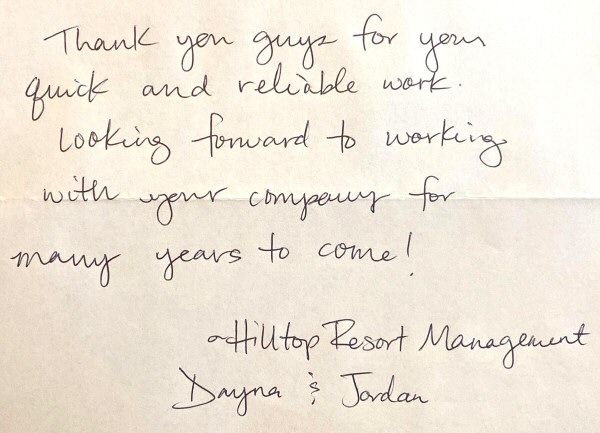 Thank you guys for your
quick and reliable work.
Looking forward to working
with your company for
many years to come!
~Hilltop Resort Management
Dayna & Jordan